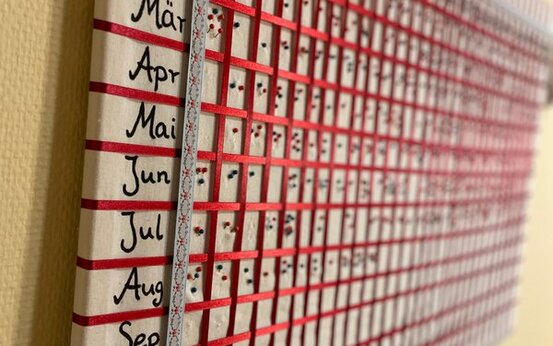 Mär
Apr
Mai
Jun
Jul
Aug
Sep